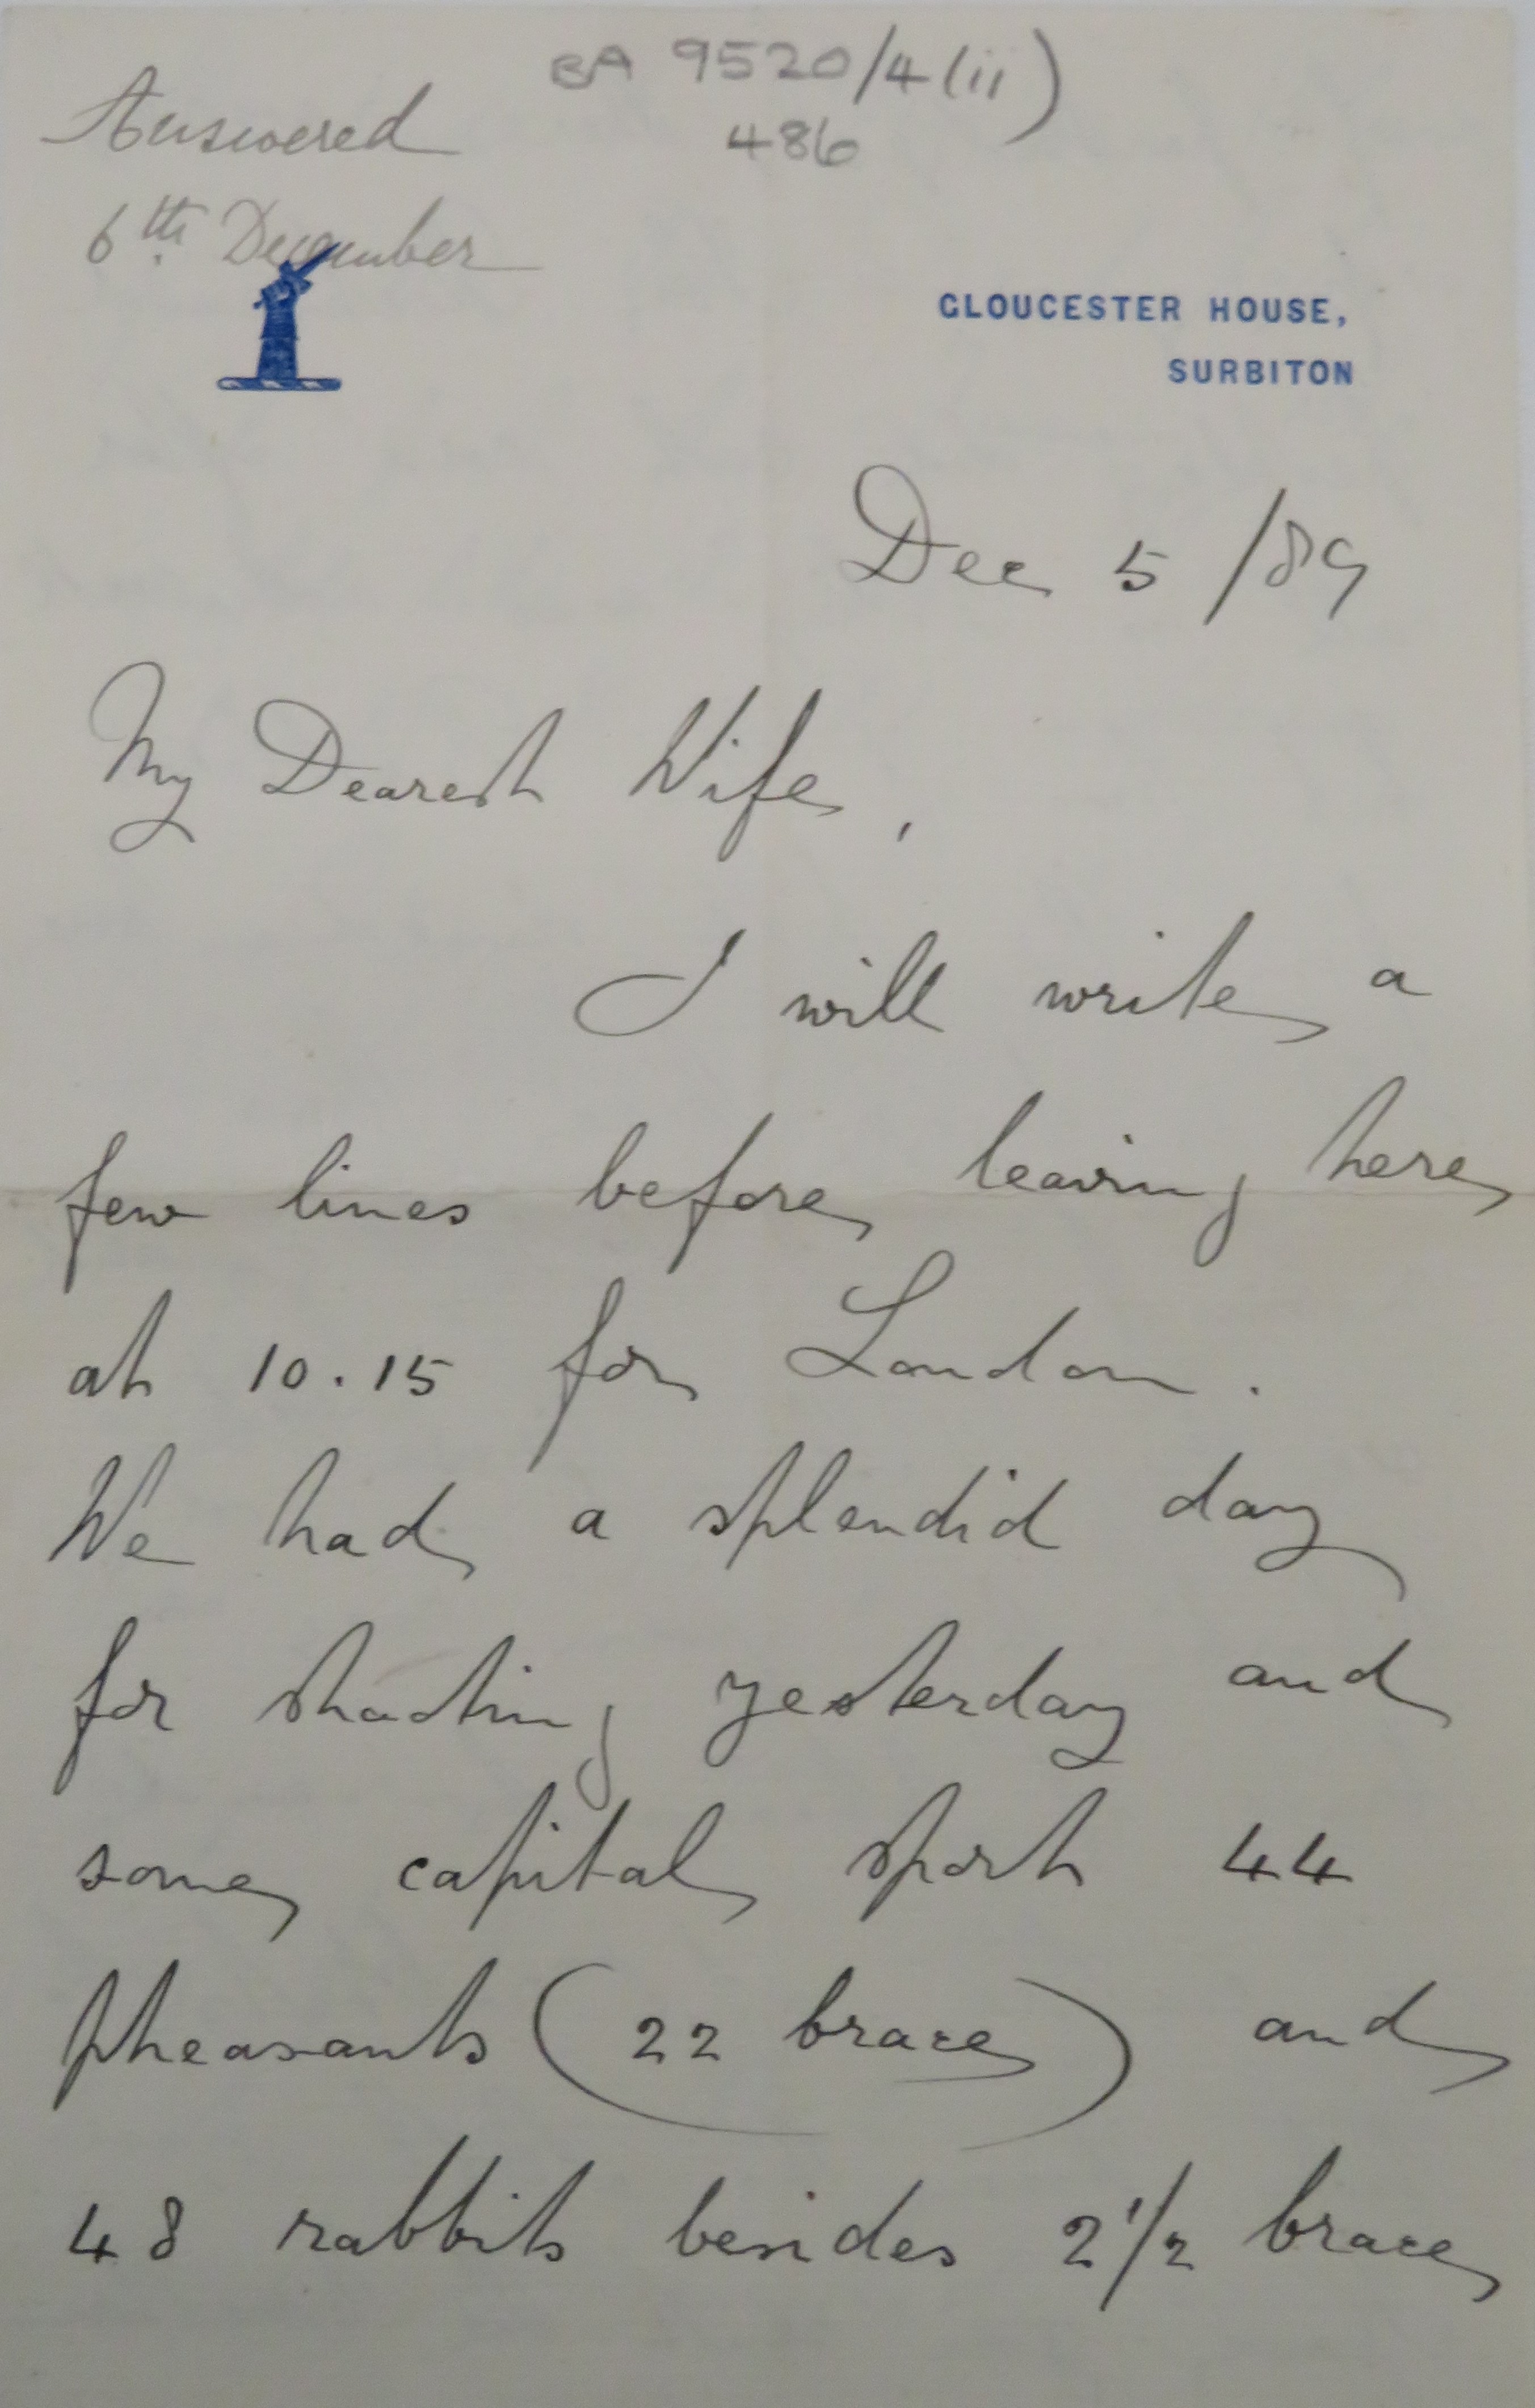 BA 9520/4(ii)
486
Answered
6th December
GLOUCESTER HOUSE,
SURBITON
Dec 5 /89
My Dearest Wife,
I will write a
few lines before leaving here
at 10.15 for London.
We had a splendid day
for shooting yesterday and
some capital sport 44
pheasants (22 brace) and
48 rabbits besides 2 1/2 brace